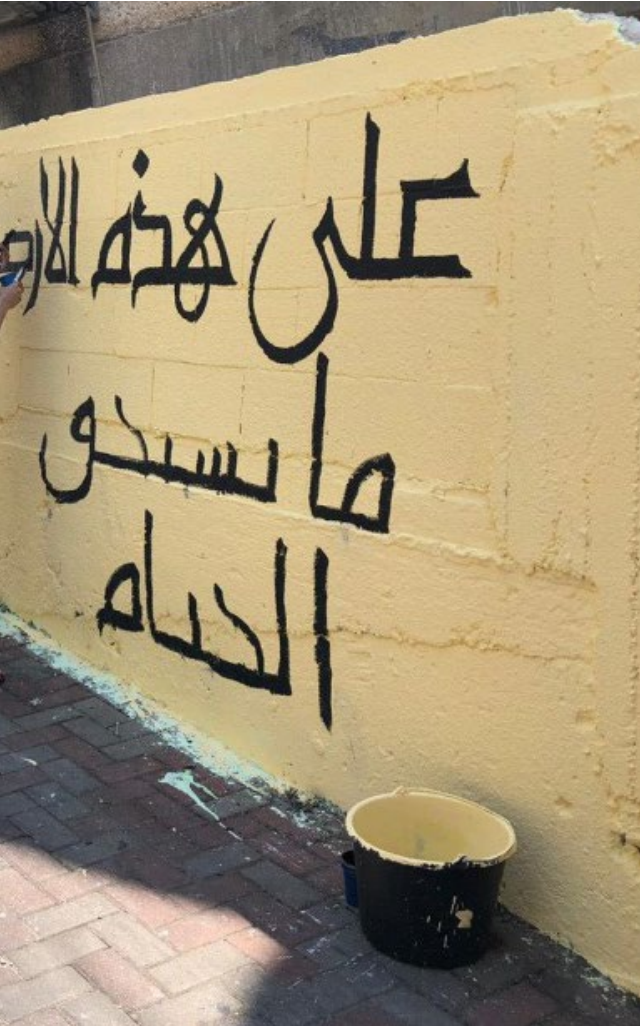 على هذه الارض
ما يستحق
الحيام